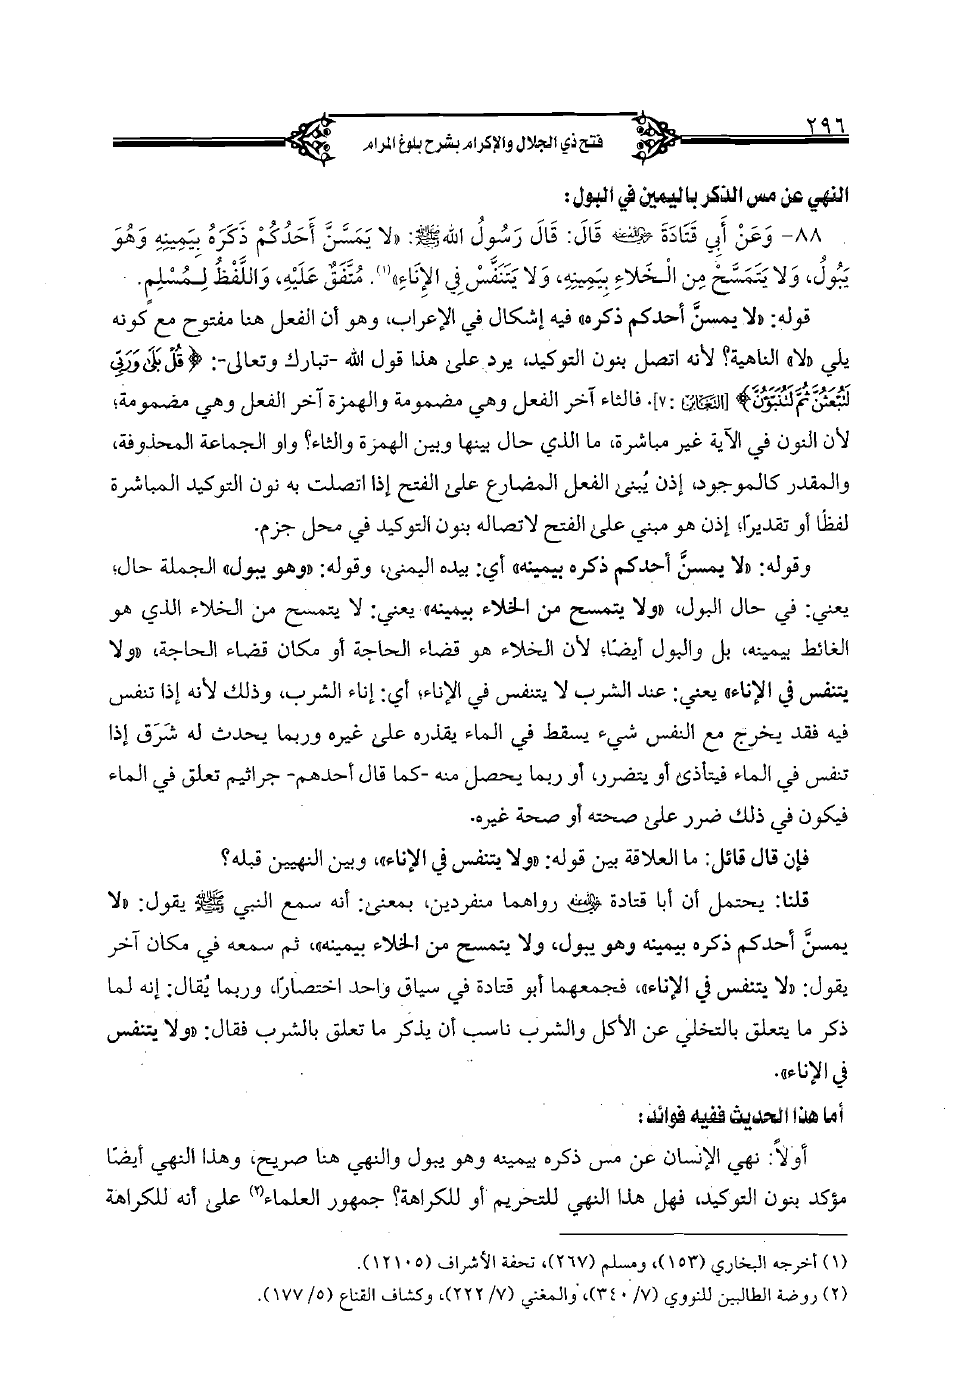 ٢٩٦
فتح ذي الجلال والإكرام بشرح بلوغ المرام
النهي عن مس الذكر باليمين في البول:
٨٨- وَعَنْ أَبِي قَتَادَةَ رضي الله عنه قَالَ: قَالَ رَسُولُ اللهِ ﷺ: «لا يَمَسَّنَّ أَحَدُكُمْ ذَكَرَهُ بِيَمِينِهِ وَهُوَ
يَبُولُ، وَلا يَتَمَسَّحْ مِنَ الْخَلاءِ بِيَمِينِهِ، وَلا يَتَنَفَّسْ فِي الإِنَاءِ»(١). مُتَّفَقٌ عَلَيْهِ، وَاللَّفْظُ لِمُسْلِمٍ.
قوله: «لا يمسنَّ أحدكم ذكره» فيه إشكال في الإعراب، وهو أن الفعل هنا مفتوح مع كونه
يلي «لا» الناهية؟ لأنه اتصل بنون التوكيد، يرد على هذا قول الله -تبارك وتعالى-: ﴿قُلْ بَلَىٰ وَرَبِّي
لَتُبْعَثُنَّ ثُمَّ لَتُنَبَّؤُنَّ﴾ [التغابن: ٧]. فالثاء آخر الفعل وهي مضمومة والهمزة آخر الفعل وهي مضمومة؛
لأن النون في الآية غير مباشرة، ما الذي حال بينها وبين الهمزة والثاء؟ واو الجماعة المحذوفة،
والمقدر كالموجود، إذن يُبنى الفعل المضارع على الفتح إذا اتصلت به نون التوكيد المباشرة
لفظًا أو تقديرًا؛ إذن هو مبني على الفتح لاتصاله بنون التوكيد في محل جزم.
وقوله: «لا يمسنَّ أحدكم ذكره بيمينه» أي: بيده اليمنى، وقوله: «وهو يبول» الجملة حال؛
يعني: في حال البول، «ولا يتمسح من الخلاء بيمينه» يعني: لا يتمسح من الخلاء الذي هو
الغائط بيمينه، بل والبول أيضًا؛ لأن الخلاء هو قضاء الحاجة أو مكان قضاء الحاجة، «ولا
يتنفس في الإناء» يعني: عند الشرب لا يتنفس في الإناء؛ أي: إناء الشرب، وذلك لأنه إذا تنفس
فيه فقد يخرج مع النفس شيء يسقط في الماء يقذره على غيره وربما يحدث له شَرَق إذا
تنفس في الماء فيتأذى أو يتضرر، أو ربما يحصل منه -كما قال أحدهم- جراثيم تعلق في الماء
فيكون في ذلك ضرر على صحته أو صحة غيره.
فإن قال قائل: ما العلاقة بين قوله: «ولا يتنفس في الإناء»، وبين النهيين قبله؟
قلنا: يحتمل أن أبا قتادة رضي الله عنه رواهما منفردين، بمعنى: أنه سمع النبي ﷺ يقول: «لا
يمسنَّ أحدكم ذكره بيمينه وهو يبول، ولا يتمسح من الخلاء بيمينه»، ثم سمعه في مكان آخر
يقول: «لا يتنفس في الإناء»، فجمعهما أبو قتادة في سياق واحد اختصارًا، وربما يُقال: إنه لما
ذكر ما يتعلق بالتخلي عن الأكل والشرب ناسب أن يذكر ما تعلق بالشرب فقال: «ولا يتنفس
في الإناء».
أما هذا الحديث ففيه فوائد:
أولاً: نهي الإنسان عن مس ذكره بيمينه وهو يبول والنهي هنا صريح، وهذا النهي أيضًا
مؤكد بنون التوكيد، فهل هذا النهي للتحريم أو للكراهة؟ جمهور العلماء(٢) على أنه للكراهة
(١) أخرجه البخاري (١٥٣)، ومسلم (٢٦٧)، تحفة الأشراف (١٢١٠٥).
(٢) روضة الطالبين للنووي (٣٤٠/٧)، والمغني (٢٢٢/٧)، وكشاف القناع (١٧٧/٥).